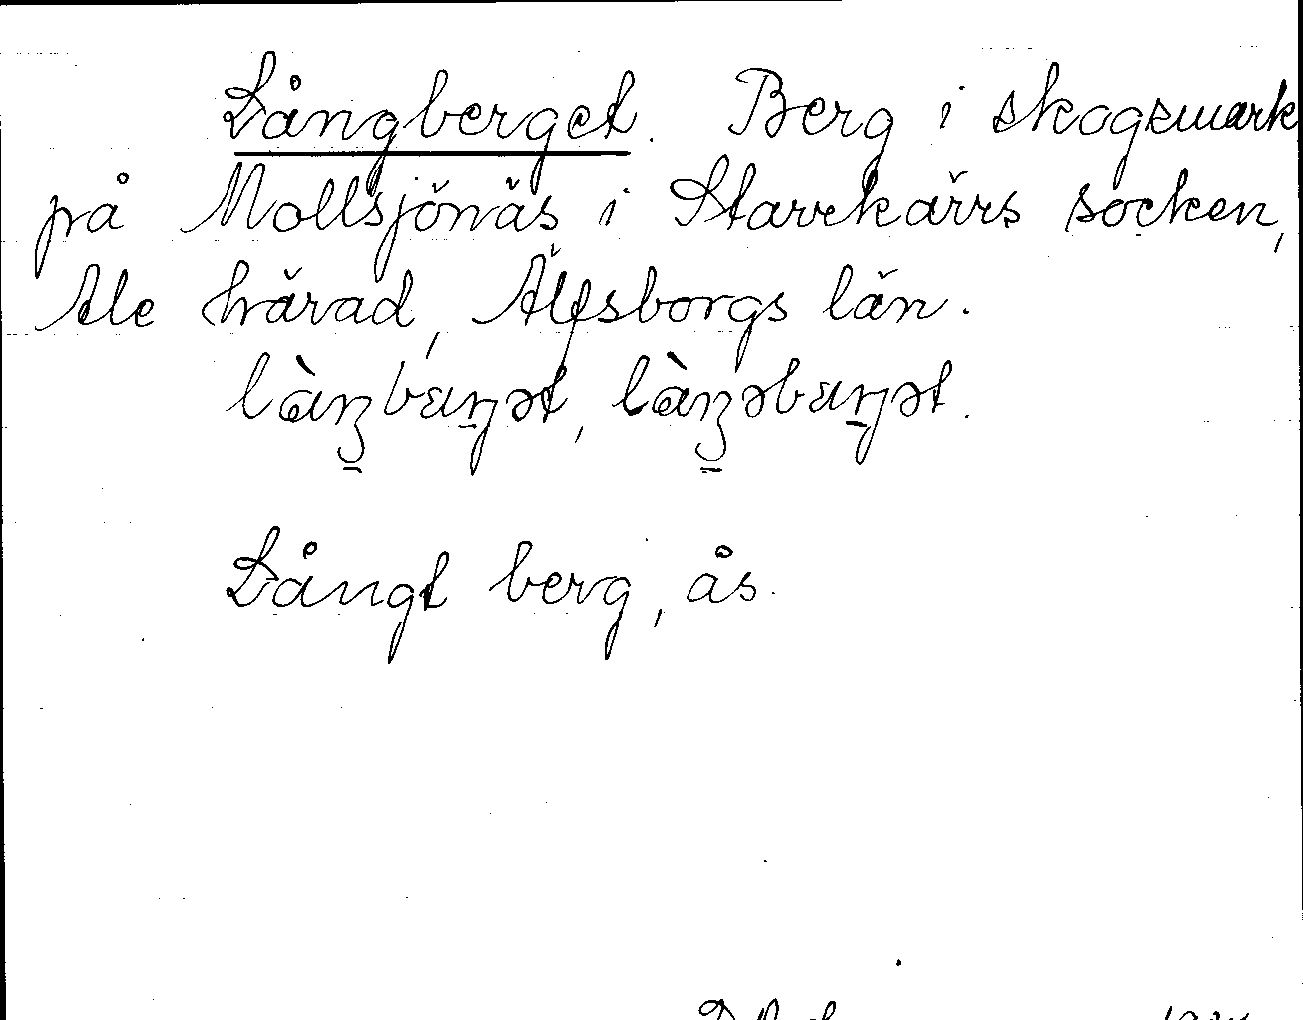 Långberget. Berg i skogsmark
på Mollsjönäs i Starrkärrs socken,
Ale härad, Älfsborgs län.
Långt berg, ås.